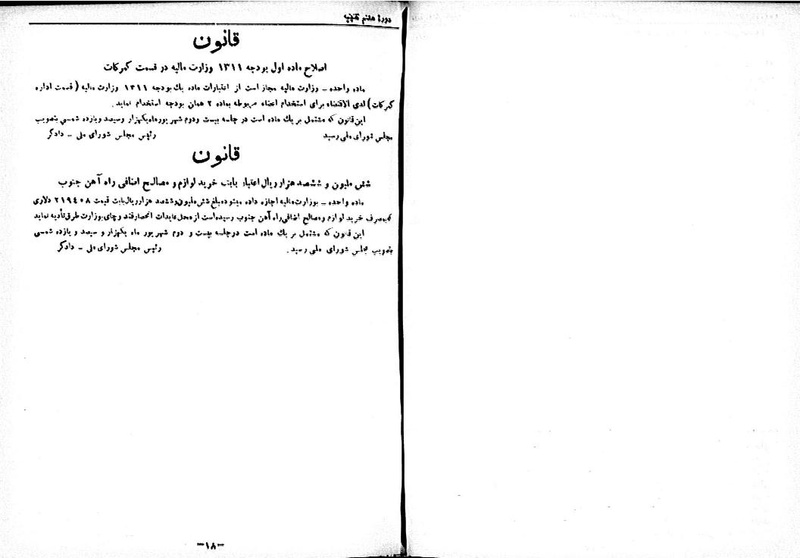 دورهٔ هفتم تقنینیه
قانون
اصلاح ماده اول بودجه ۱۳۱۱ وزارت مالیه در قسمت گمرکات
ماده واحده - وزارت مالیه مجاز است از اعتبارات ماده یک بودجه ۱۳۱۱ وزارت مالیه ( قسمت اداره
گمرکات ) لدی الاقتضاء برای استخدام اعضاء مربوطه بماده ۲ همان بودجه استخدام نماید.
این قانون که مشتمل بر یک ماده است در جلسه بیست و دوم شهریور ماه یکهزار و سیصد و یازده شمسی بتصویب
مجلس شورای ملی رسید رئیس مجلس شورای ملی - دادگر
قانون
شش ملیون و ششصد هزار ریال اعتبار بابت خرید لوازم و مصالح اضافی راه آهن جنوب
ماده واحده - بوزارت مالیه اجازه داده میشود مبلغ شش ملیون و ششصد هزار ریال بابت قیمت ۲۱۹۴۰۸ دلاری
که بمصرف خرید لوازم و مصالح اضافی راه آهن جنوب رسیده است از محل عایدات انحصار قند و چای بوزارت طرق تأدیه نماید
این قانون که مشتمل بر یک ماده است در جلسه بیست و دوم شهریور ماه یکهزار و سیصد و یازده شمسی
بتصویب مجلس شورای ملی رسید. رئیس مجلس شورای ملی - دادگر
-۱۸-